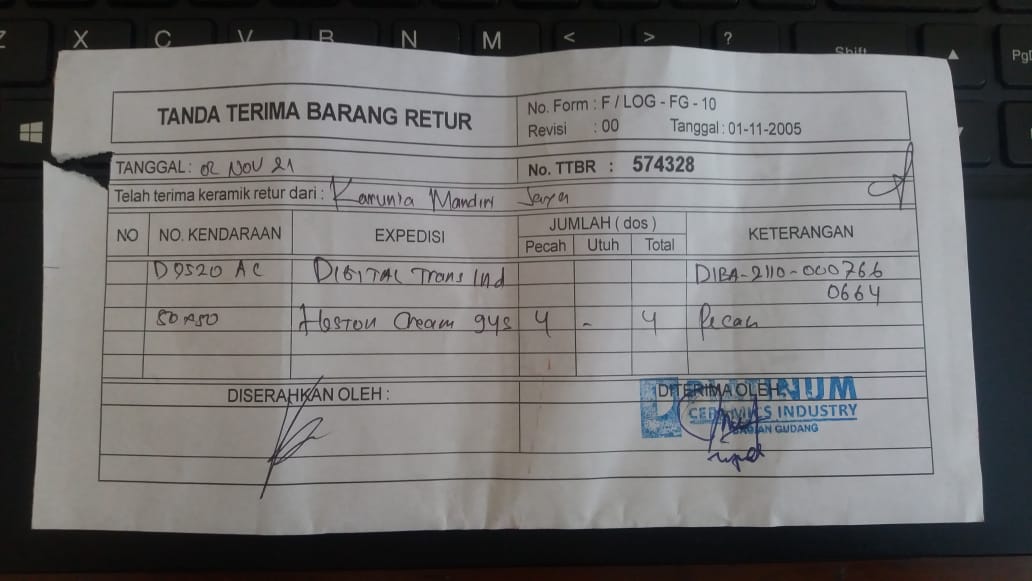 Z X C V B N M < > ? Shift ▲ PgD
TANDA TERIMA BARANG RETUR
No. Form : F / LOG - FG - 10
Revisi : 00 Tanggal : 01-11-2005
TANGGAL : 02 NOV 21
No. TTBR : 574328
Telah terima keramik retur dari : Karunia Mandiri Jaya
NO NO. KENDARAAN EXPEDISI JUMLAH ( dos ) KETERANGAN
Pecah Utuh Total
D 9520 AC DIGITAL Trans Ind DIBA-2110-000766
0664
50x50 Heston Cream 4 - 4 Pecah
DISERAHKAN OLEH :
DITERIMA OLEH :
PLATINUM
CERAMICS INDUSTRY
BAGIAN GUDANG